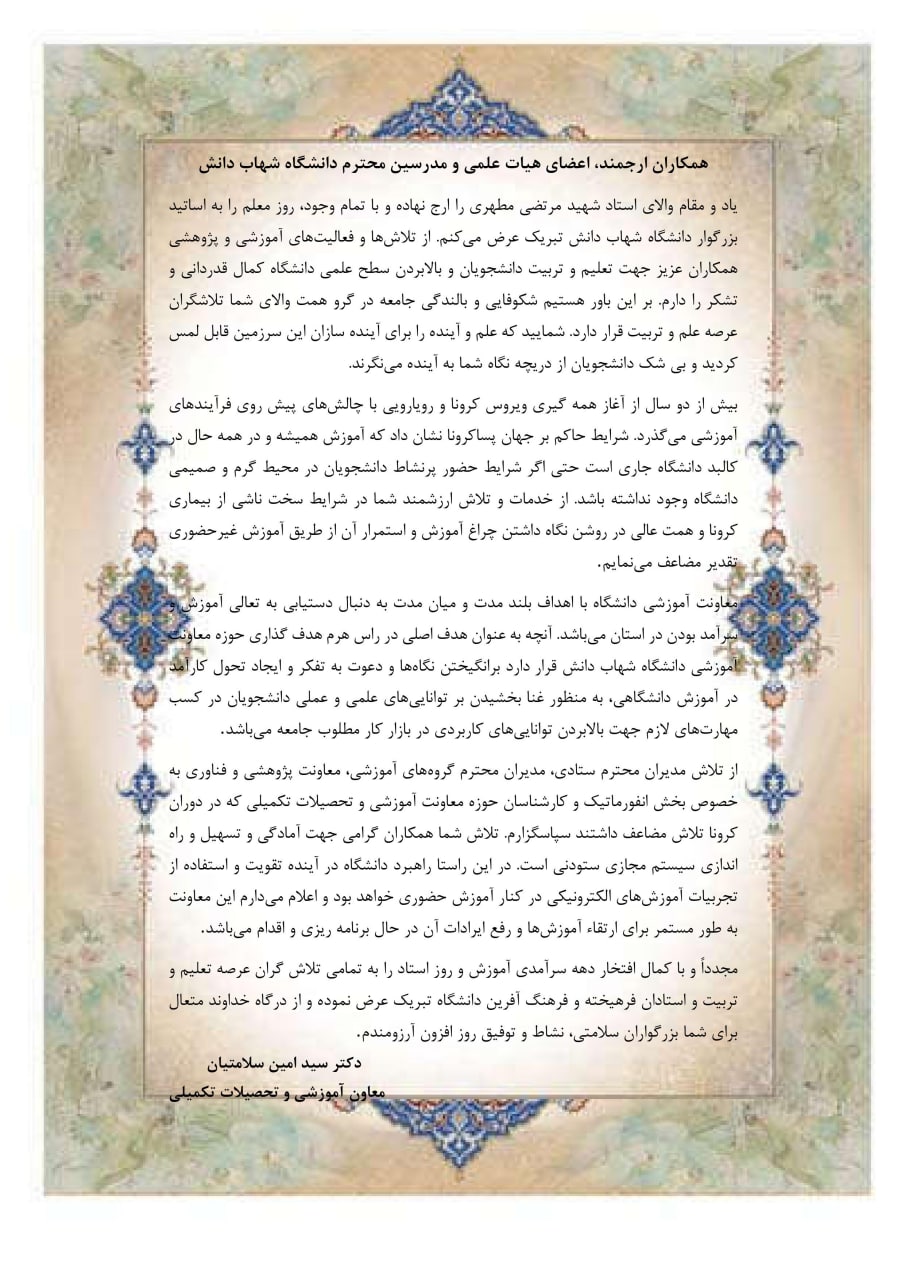 همکاران ارجمند، اعضای هیات علمی و مدرسین محترم دانشگاه شهاب دانش
یاد و مقام والای استاد شهید مرتضی مطهری را ارج نهاده و با تمام وجود، روز معلم را به اساتید
بزرگوار دانشگاه شهاب دانش تبریک عرض می‌کنم. از تلاش‌ها و فعالیت‌های آموزشی و پژوهشی
همکاران عزیز جهت تعلیم و تربیت دانشجویان و بالابردن سطح علمی دانشگاه کمال قدردانی و
تشکر را دارم. بر این باور هستیم شکوفایی و بالندگی جامعه در گرو همت والای شما تلاشگران
عرصه علم و تربیت قرار دارد. شمایید که علم و آینده را برای آینده سازان این سرزمین قابل لمس
کردید و بی شک دانشجویان از دریچه نگاه شما به آینده می‌نگرند.
بیش از دو سال از آغاز همه گیری ویروس کرونا و رویارویی با چالش‌های پیش روی فرآیندهای
آموزشی می‌گذرد. شرایط حاکم بر جهان پساکرونا نشان داد که آموزش همیشه و در همه حال در
کالبد دانشگاه جاری است حتی اگر شرایط حضور پرنشاط دانشجویان در محیط گرم و صمیمی
دانشگاه وجود نداشته باشد. از خدمات و تلاش ارزشمند شما در شرایط سخت ناشی از بیماری
کرونا و همت عالی در روشن نگاه داشتن چراغ آموزش و استمرار آن از طریق آموزش غیرحضوری
تقدیر مضاعف می‌نمایم.
معاونت آموزشی دانشگاه با اهداف بلند مدت و میان مدت به دنبال دستیابی به تعالی آموزش و
سرآمد بودن در استان می‌باشد. آنچه به عنوان هدف اصلی در راس هرم هدف گذاری حوزه معاونت
آموزشی دانشگاه شهاب دانش قرار دارد برانگیختن نگاه‌ها و دعوت به تفکر و ایجاد تحول کارآمد
در آموزش دانشگاهی، به منظور غنا بخشیدن بر توانایی‌های علمی و عملی دانشجویان در کسب
مهارت‌های لازم جهت بالابردن توانایی‌های کاربردی در بازار کار مطلوب جامعه می‌باشد.
از تلاش مدیران محترم ستادی، مدیران محترم گروه‌های آموزشی، معاونت پژوهشی و فناوری به
خصوص بخش انفورماتیک و کارشناسان حوزه معاونت آموزشی و تحصیلات تکمیلی که در دوران
کرونا تلاش مضاعف داشتند سپاسگزارم. تلاش شما همکاران گرامی جهت آمادگی و تسهیل و راه
اندازی سیستم مجازی ستودنی است. در این راستا راهبرد دانشگاه در آینده تقویت و استفاده از
تجربیات آموزش‌های الکترونیکی در کنار آموزش حضوری خواهد بود و اعلام می‌دارم این معاونت
به طور مستمر برای ارتقاء آموزش‌ها و رفع ایرادات آن در حال برنامه ریزی و اقدام می‌باشد.
مجدداً و با کمال افتخار دهه سرآمدی آموزش و روز استاد را به تمامی تلاش گران عرصه تعلیم و
تربیت و استادان فرهیخته و فرهنگ آفرین دانشگاه تبریک عرض نموده و از درگاه خداوند متعال
برای شما بزرگواران سلامتی، نشاط و توفیق روز افزون آرزومندم.
دکتر سید امین سلامتیان
معاون آموزشی و تحصیلات تکمیلی